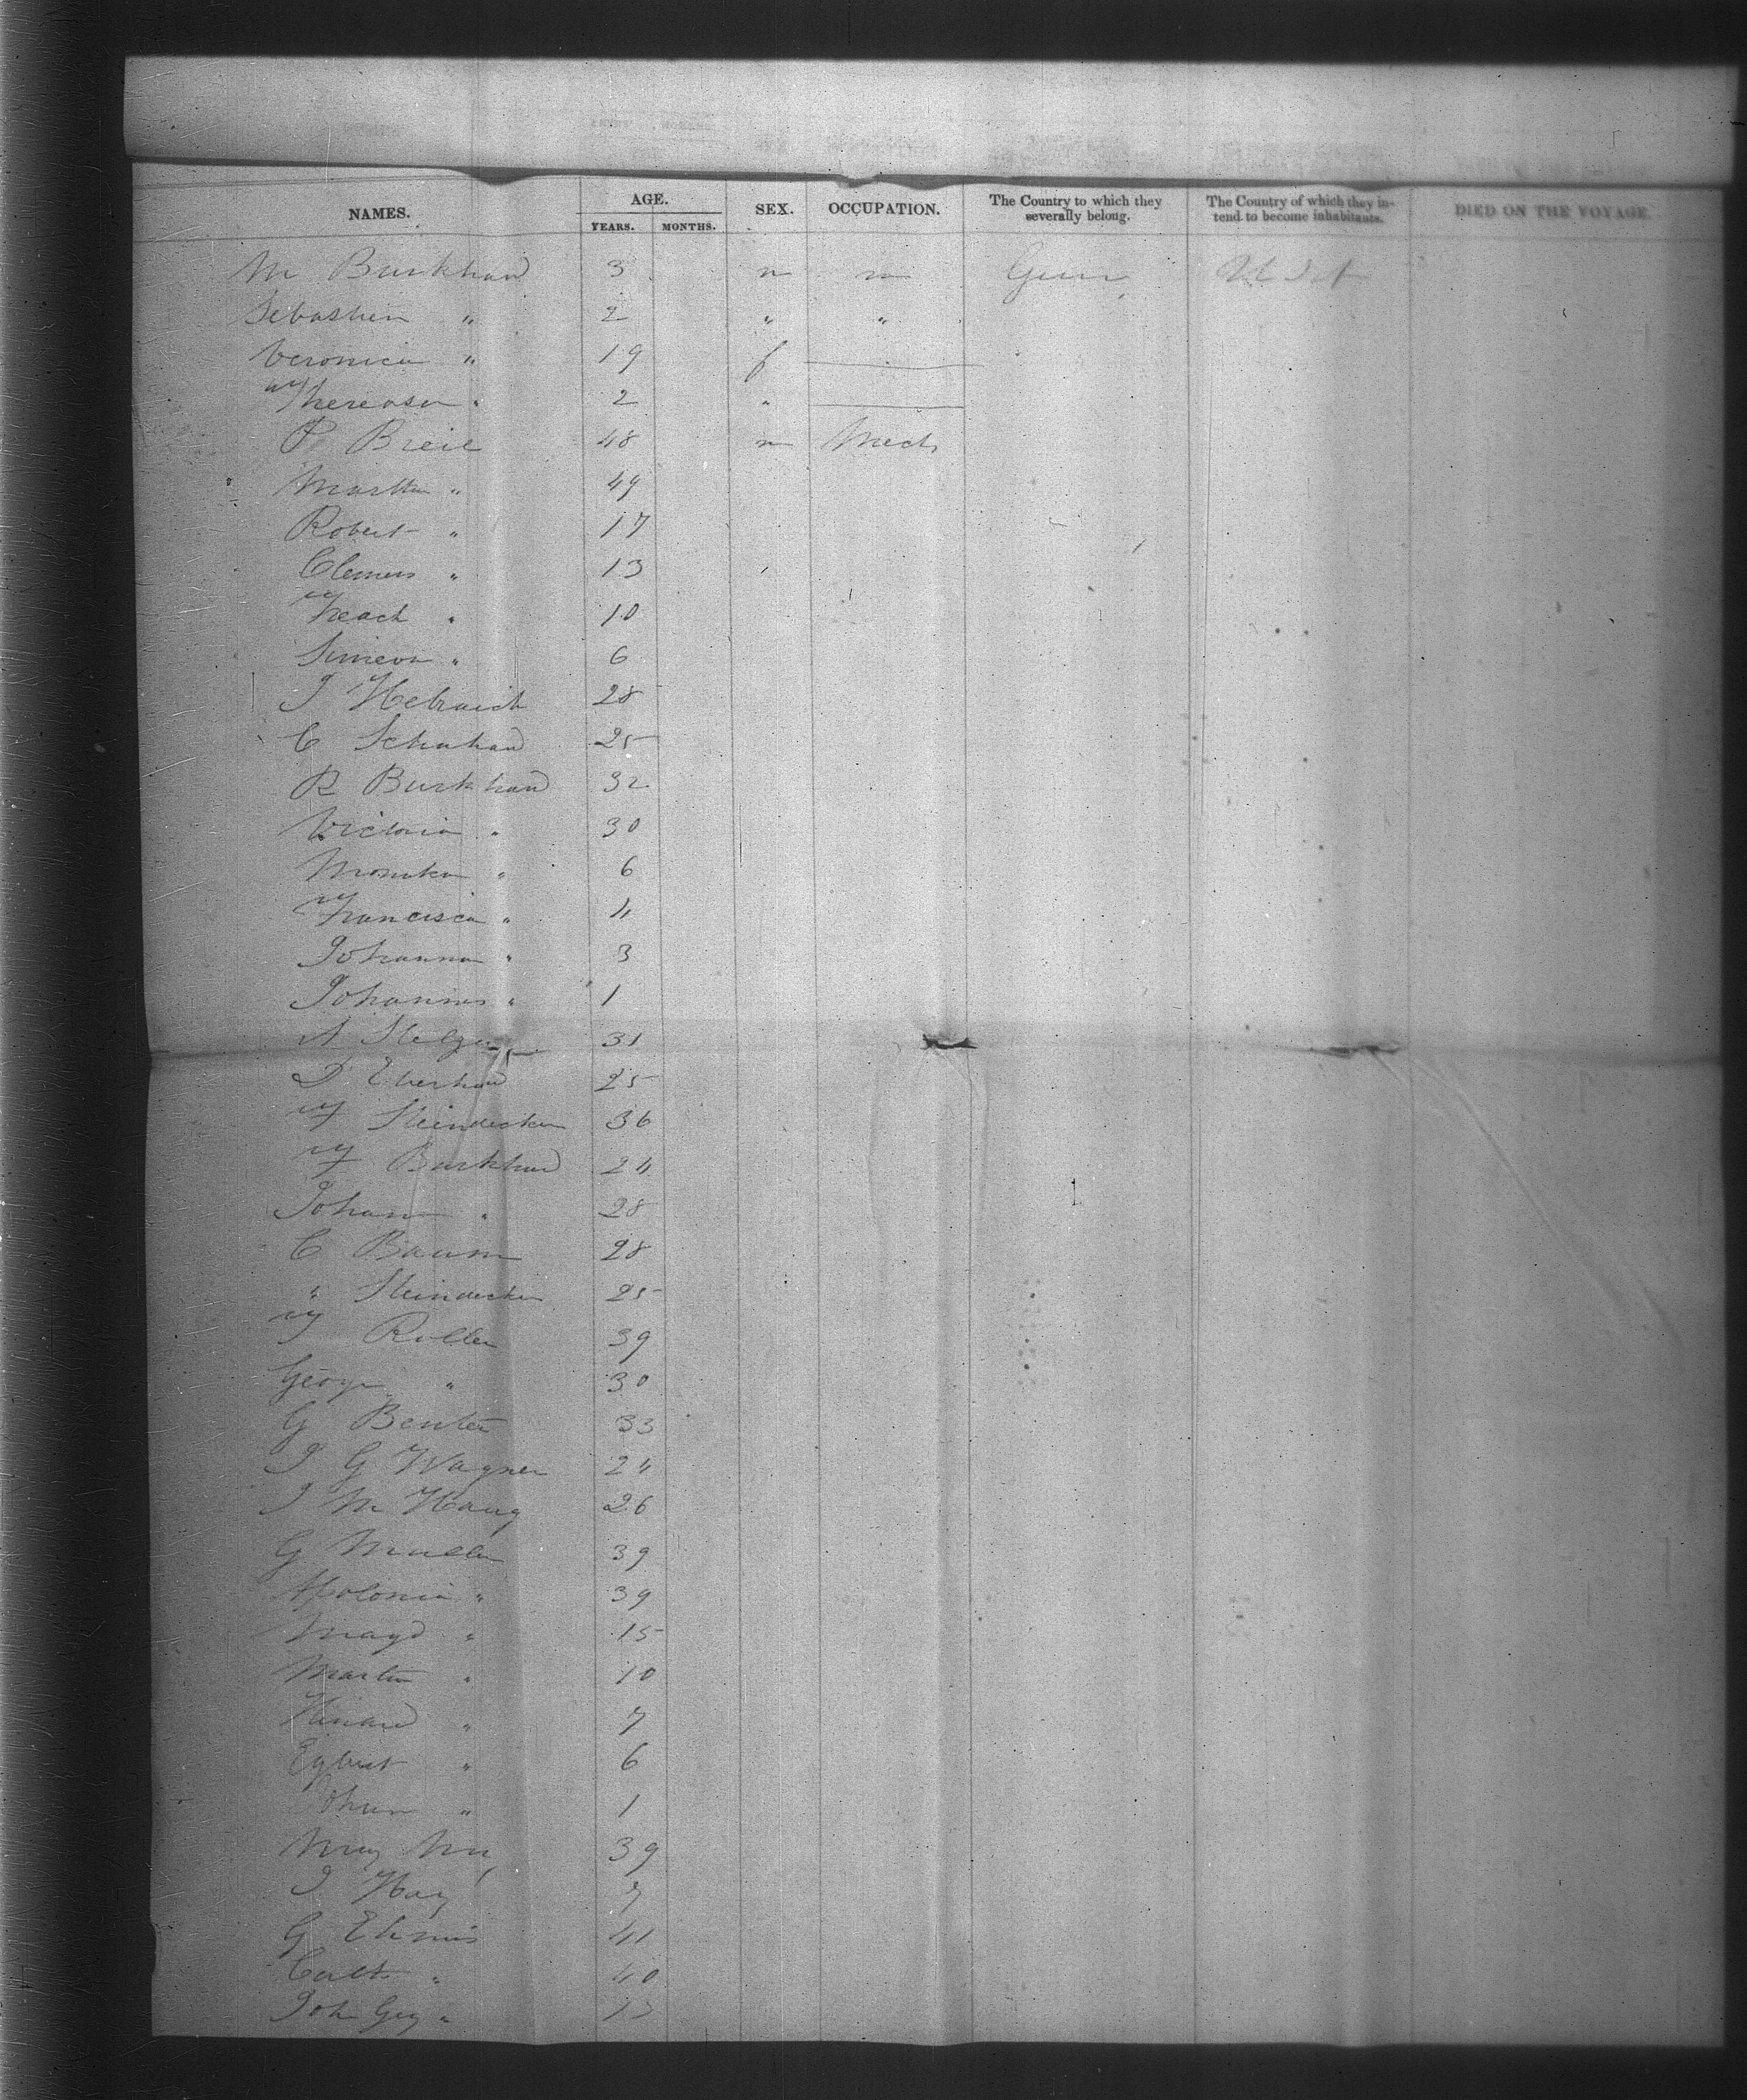 NAMES. AGE. SEX. OCCUPATION. The Country to which they severally belong. The Country of which they intend to become inhabitants. DIED ON THE VOYAGE.
YEARS. MONTHS.
M Burkhard 3 m m Germ
Sebastien " 2 " "
Veronica " 19 f
Theresa " 2 "
P Breil 48 m Mech
Martha " 49
Robert " 17
Clemens " 13
" 10
Simeon " 6
J 28
C Schuhard 25
R Burkhard 32
Victoria " 30
Monika " 6
Francisca " 4
Johanna " 3
Johannes " 1
A 31
D Eberhard 25
F Steindecker 36
F Burkhard 24
Johann " 28
C Baum 28
" Steindecker 25
F Roller 39
George " 30
G 33
J G Wagner 24
J M Haug 26
G Muller 39
Apolonia " 39
Magd " 15
Martin " 10
" 7
Egbert " 6
Johan " 1
39
J Hay 7
G 41
" 40
Joh Geg "